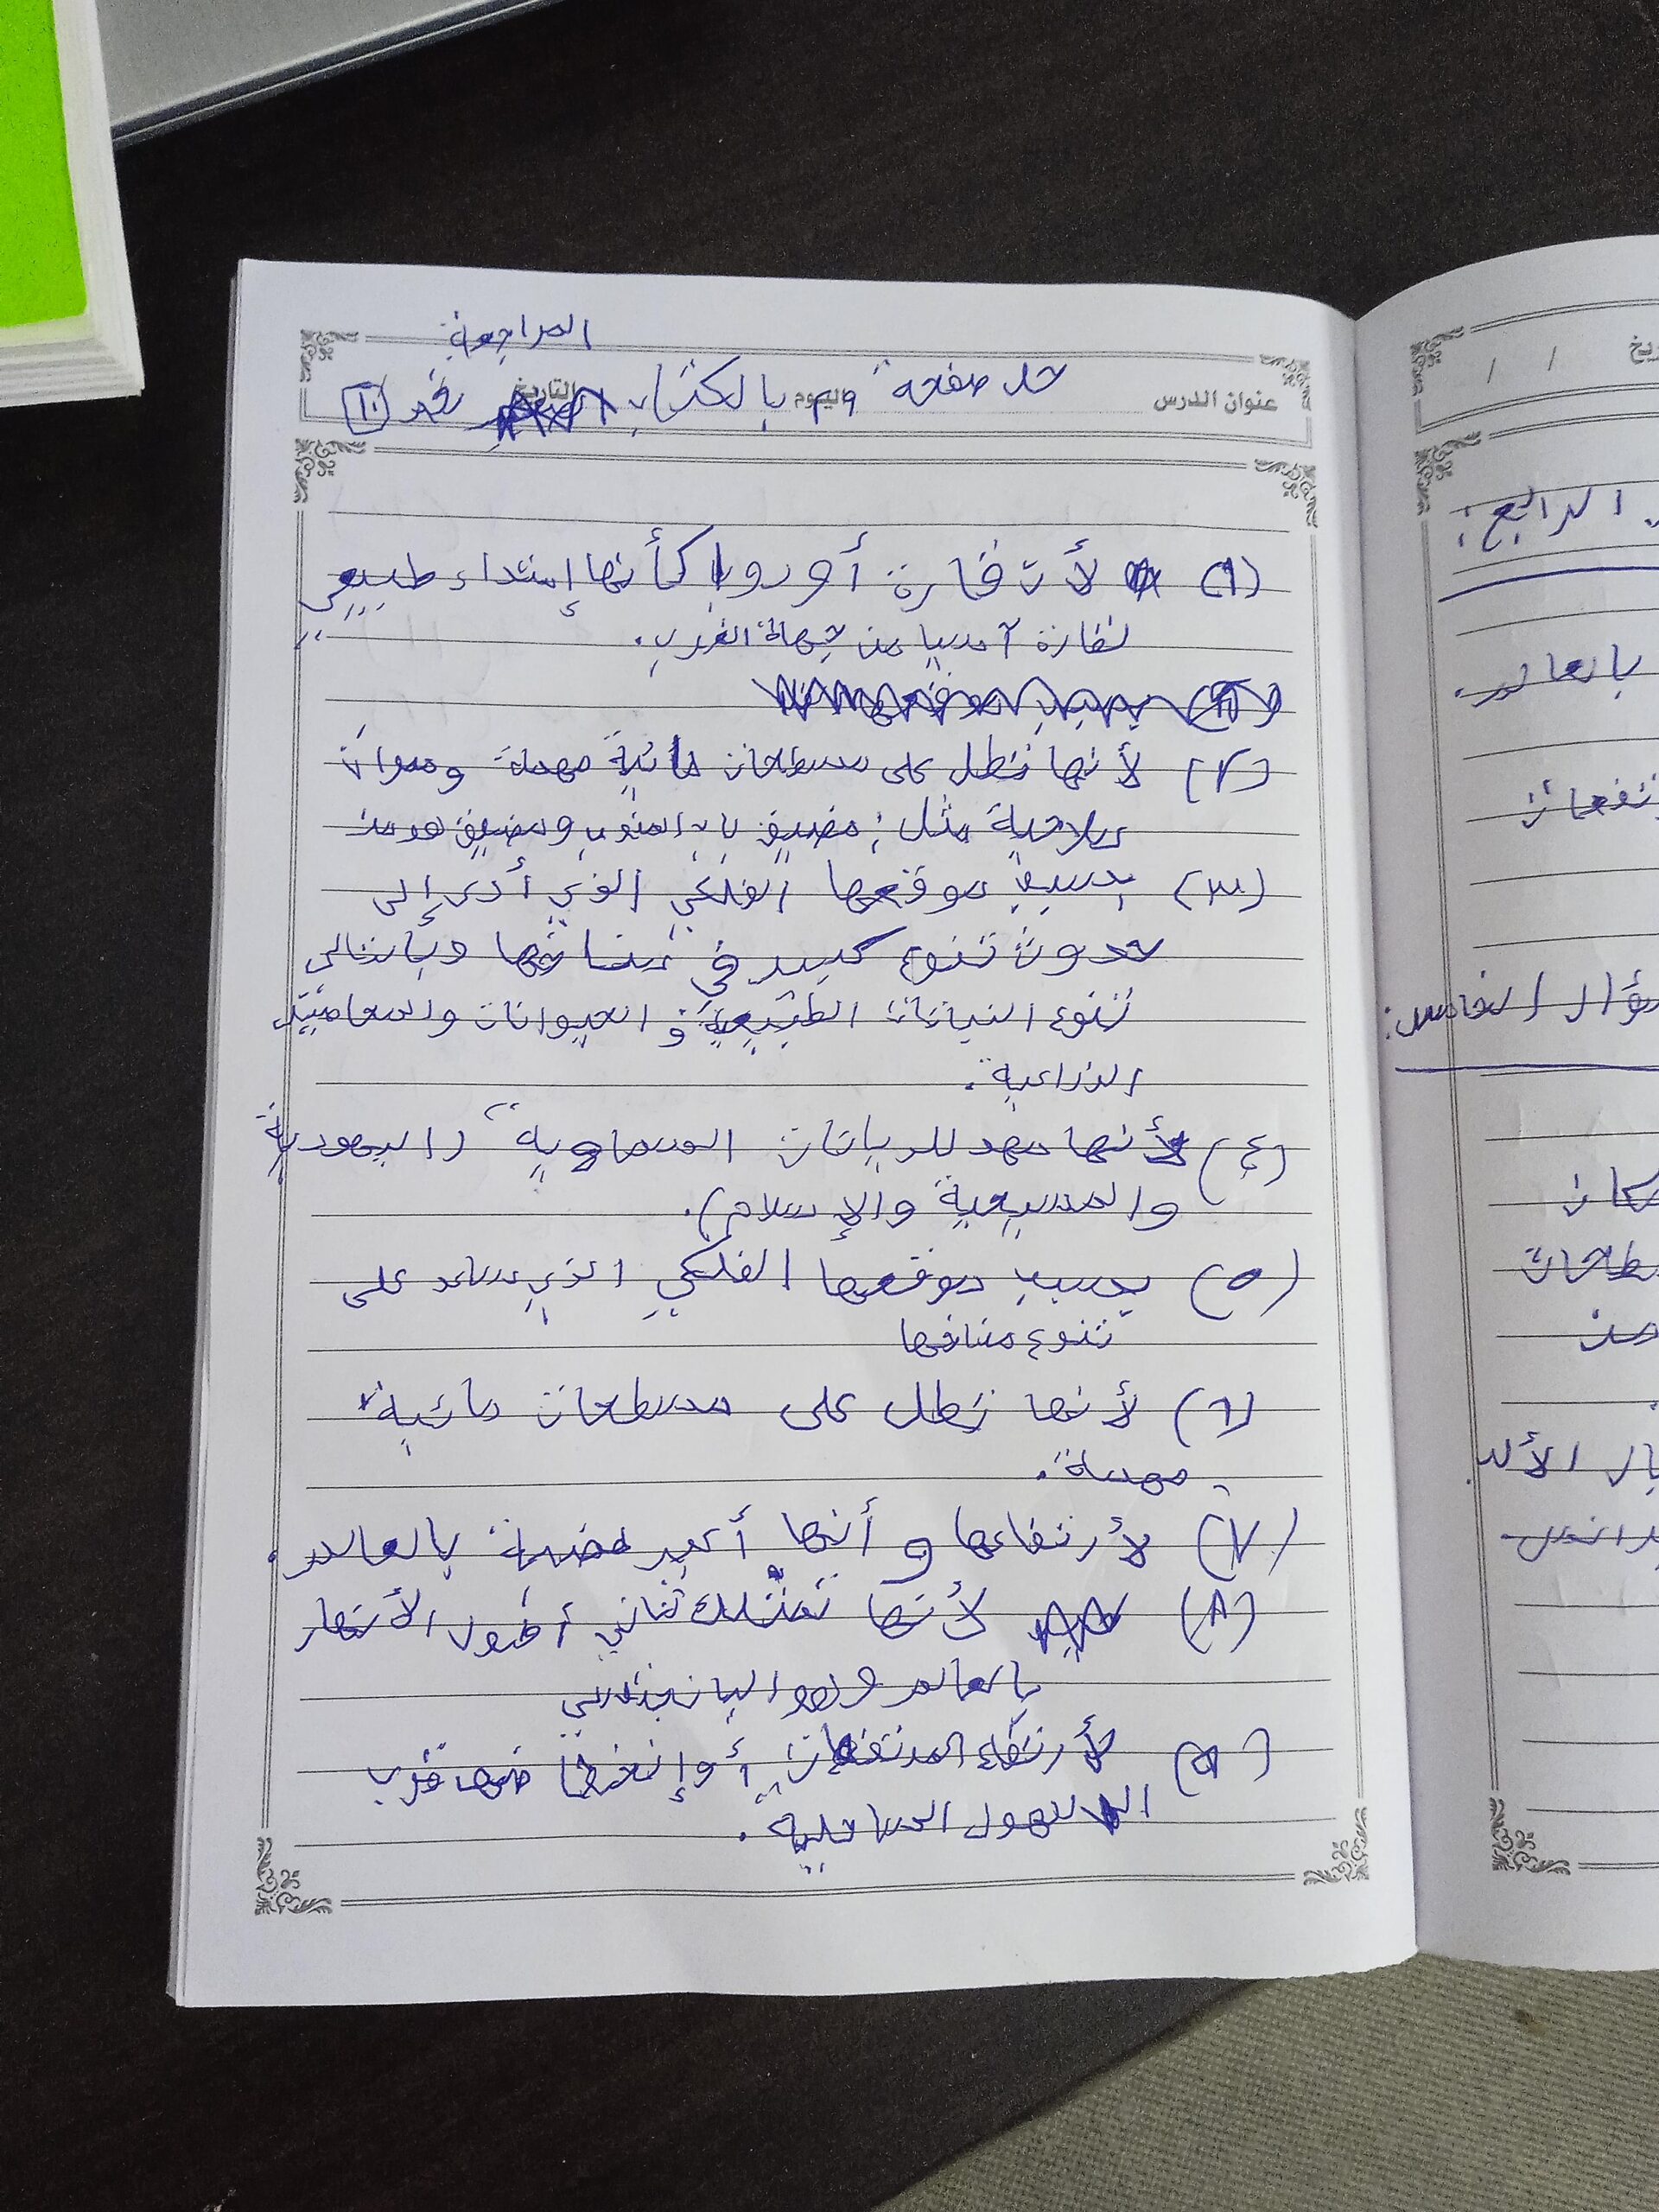 المراجعة
حل صفحة ٢٩ بالكتاب رقم ١٠
عنوان الدرس اليوم التاريخ
(١) لأن قارة أوروبا كأنها إمتداد طبيعي
لقارة آسيا من جهة الغرب.
(٢) لأنها تطل على مسطحات مائية مهمة وممرات
ملاحية مثل: مضيق باب المندب ومضيق هرمز
(٣) بسبب موقعها الفلكي الذي أدى إلى
حدوث تنوع كبير في مناخها وبالتالي
تنوع النباتات الطبيعية و الحيوانات والمحاصيل
الزراعية.
(٤) لأنها مهد للديانات السماوية (اليهودية
والمسيحية والإسلام).
(٥) بسبب موقعها الفلكي الذي ساعد على
تنوع مناخها
(٦) لأنها تطل على مسطحات مائية
مهمة.
(٧) لأرتفاعها و أنها أكبر هضبة بالعالم.
(٨) لأنها تمتلك ثاني أطول الأنهار
بالعالم وهو اليانجتسي
(٩) لأرتفاع المرتفعات أو إنخفاضها قرب
السهول الساحلية.
/ /
الرابع:
بالعالم.